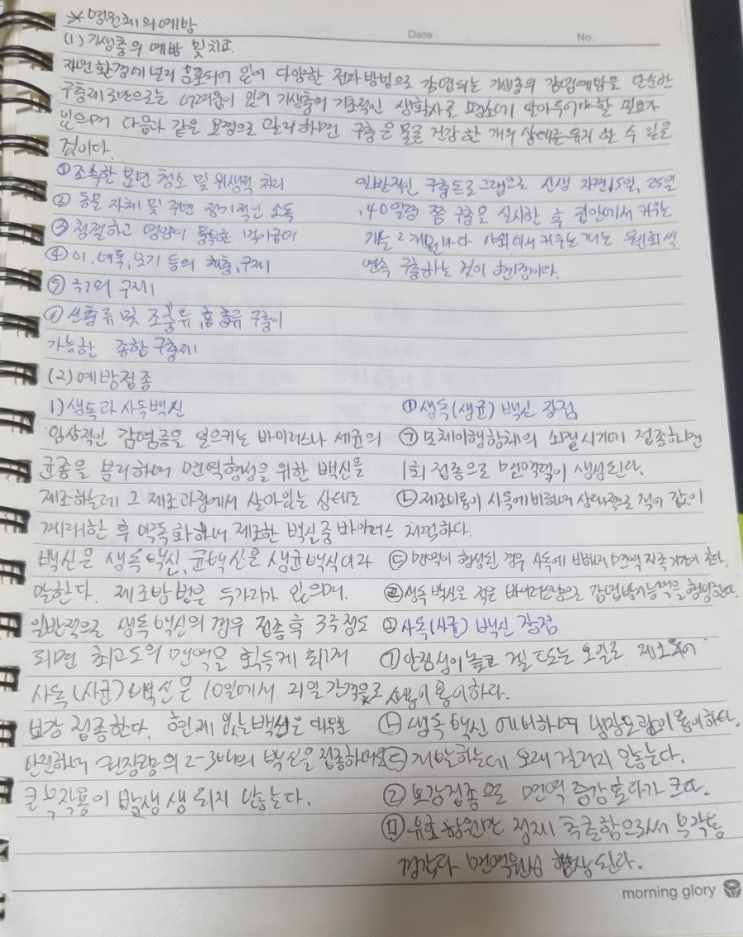 * 병원체의 예방
Date No.
(1) 기생충의 예방 및 치료
자연환경에 널리 분포되어 있어 다양한 전파방법으로 감염되는 기생충의 감염예방을 단순한
구충제 만으로는 어려움이 있어 기생충의 기본적인 생활사를 평소에 알아두어야 할 필요가
있으며 다음과 같은 요령으로 관리하면 구충은 물론 건강한 개의 상태를 유지 할 수 있을
것이다.
① 조속한 분변 청소 및 위생적 처리
② 동물 자체 및 주변 정기적인 소독
③ 청결하고 영양이 풍부한 먹이급여
④ 이, 벼룩, 진드기 등의 해충 구제
⑤ 쥐의 구제
⑥ 선충류 및 조충류, 흡충류 구충이
가능한 종합 구충제
일반적인 구충프로그램으로 신생 자견 15일, 25일
, 40일령 쯤 구충을 실시한 후 집안에서 키우는
개는 2개월마다 야외에서 키우는 개는 월 1회씩
연속 구충하는 것이 현명이다.
(2) 예방접종
1) 생독과 사독백신
임상적인 감염증을 일으키는 바이러스나 세균의
균종을 분리하여 면역형성을 위한 백신을
제조하는데 그 제조과정에서 살아있는 상태로
계대한 후 약독화하여 제조한 백신중 바이러스
백신은 생독백신, 균백신은 생균백신이라
말한다. 제조방법은 두가지가 있으며
일반적으로 생독백신의 경우 접종 후 3주정도
되면 최고도의 면역을 획득케 되며
사독(사균)백신은 10일에서 21일 간격으로
보강 접종한다. 현재 있는 백신은 대부분
안전하며 권장량의 2-3배의 백신을 접종하여도
큰 부작용이 발생 되지 않는다.
① 생독(생균) 백신 장점
㉠ 모체이행항체의 소멸시기에 접종하면
1회 접종으로 면역력이 생성된다.
㉡ 제조비용이 사독에 비하여 상대적으로 적어 값이
저렴하다.
㉢ 면역이 형성된 경우 사독에 비하여 면역 지속기간이 길다.
㉣ 생독 백신은 적은 바이러스량으로 감염방기능력을 형성한다.
② 사독(사균) 백신 장점
㉠ 안전성이 높고 겔 또는 오일로 제조되어
사용이 용이하다.
㉡ 생독백신에 비하여 냉장보관이 용이하다.
㉢ 제작하는데 오래 걸리지 않는다.
㉣ 보강접종으로 면역 증강효과가 크다.
㉤ 유효항원만 정제 추출함으로써 부작용
경감과 면역원성 향상된다.
morning glory